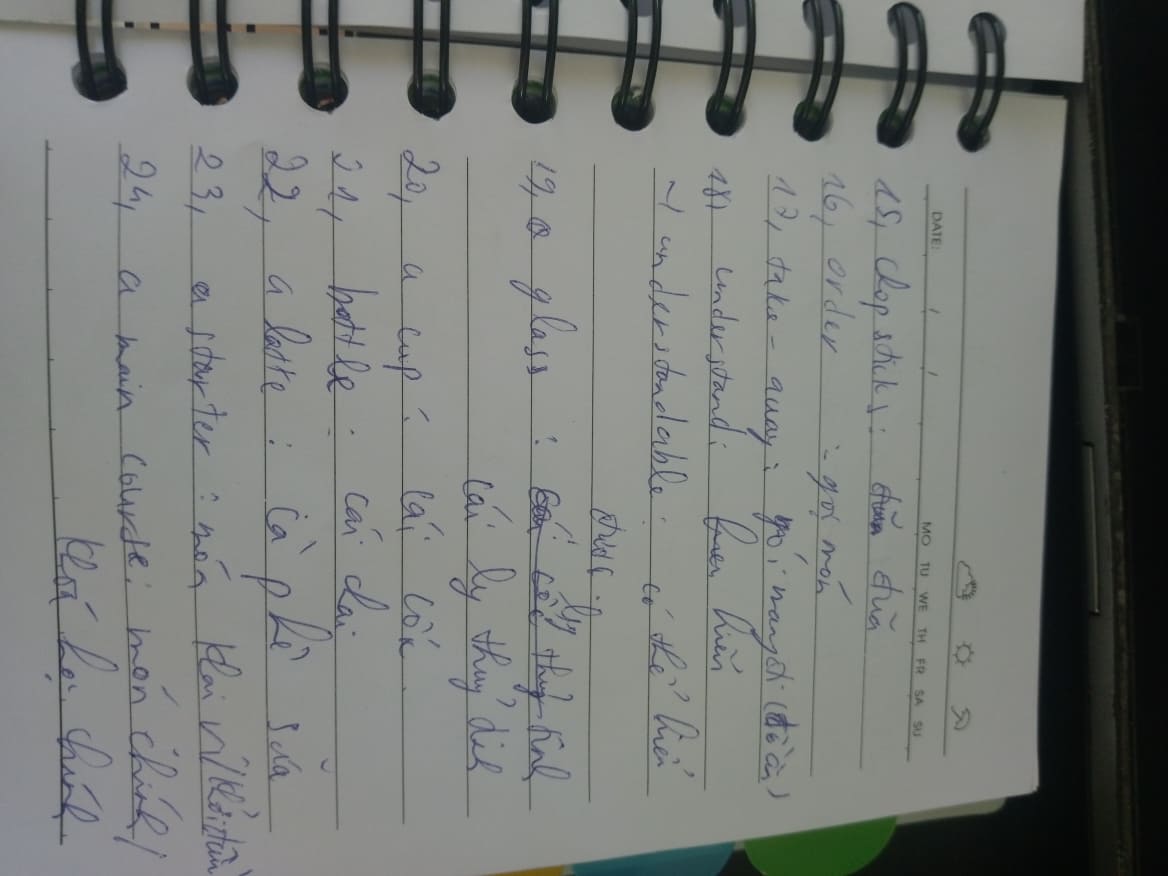 DATE: / / MO TU WE TH FR SA SU
15, chopsticks: đũa
16, order : gọi món
17, take-away: gói mang đi (đồ ăn)
18, understand: hiểu
~, understandable: có thể hiểu
được.
19, a glass : ly thủy tinh
cái ly thủy
20, a cup : cái cốc.
21, bottle : cái chai
22, a latte : cà phê sữa
23, a starter : món khai vị/khởi đầu
24, a main course: món chính/
khoá học chính